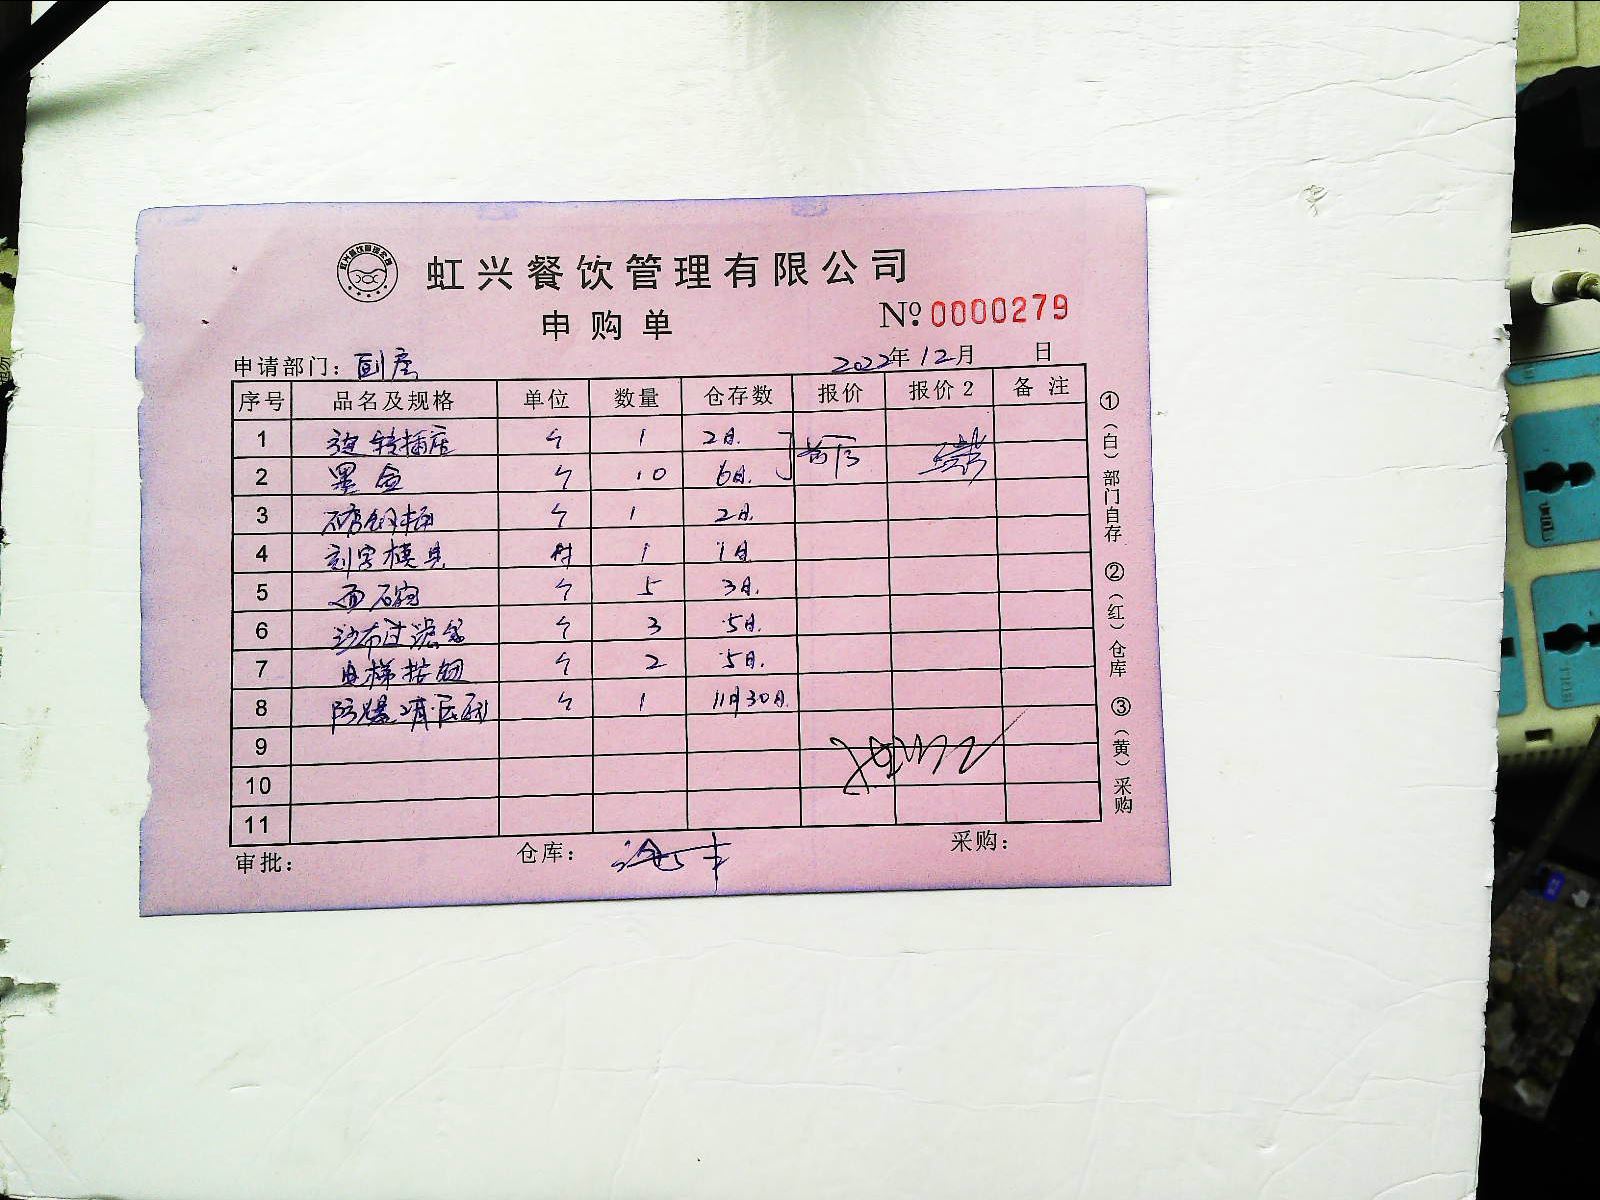 虹兴餐饮管理有限公司
申购单
№ 0000279
申请部门：
2022年12月 日
序号 品名及规格 单位 数量 仓存数 报价 报价2 备注
1 旋转插座 个 1 2日.
2 墨盒 个 10 6日.
3 个 1 2日.
4 刻字模具 付 1 1日
5 面碗 个 5 3日.
6 沙布过滤袋 个 3 5日.
7 电梯按钮 个 2 5日.
8 防爆 个 1 11月30日.
9
10
11
审批： 仓库： 采购：
①（白）部门自存 ②（红）仓库 ③（黄）采购